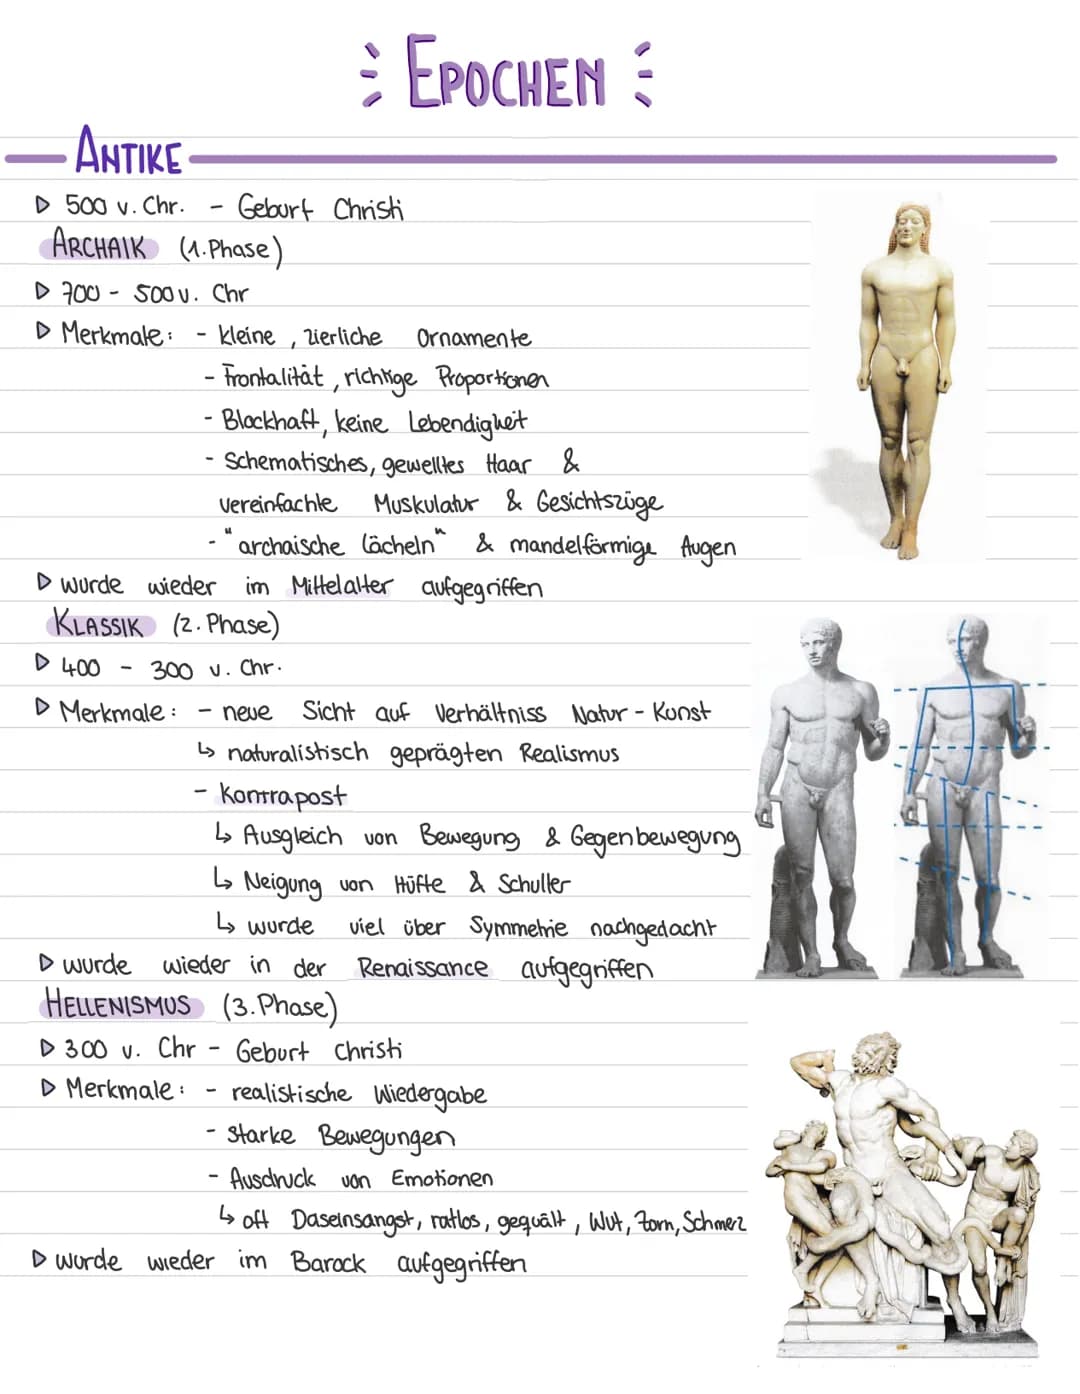 EPOCHEN
ANTIKE
▷ 500 v. Chr. - Geburt Christi
ARCHAIK (1. Phase)
▷ 700 - 500 v. Chr
▷ Merkmale: - kleine, zierliche Ornamente
- Frontalität, richtige Proportionen
- Blockhaft, keine Lebendigkeit
- Schematisches, gewelltes Haar &
vereinfachte Muskulatur & Gesichtszüge
- "archaische Lächeln" & mandelförmige Augen
▷ wurde wieder im Mittelalter aufgegriffen
KLASSIK (2. Phase)
▷ 400 - 300 v. Chr.
▷ Merkmale: - neue Sicht auf Verhältniss Natur - Kunst
↳ naturalistisch geprägten Realismus
- Kontrapost
↳ Ausgleich von Bewegung & Gegenbewegung
↳ Neigung von Hüfte & Schulter
↳ wurde viel über Symmetrie nachgedacht
▷ wurde wieder in der Renaissance aufgegriffen
HELLENISMUS (3. Phase)
▷ 300 v. Chr - Geburt Christi
▷ Merkmale: - realistische Wiedergabe
- starke Bewegungen
- Ausdruck von Emotionen
↳ oft Daseinsangst, ratlos, gequält, Wut, Zorn, Schmerz
▷ wurde wieder im Barock aufgegriffen